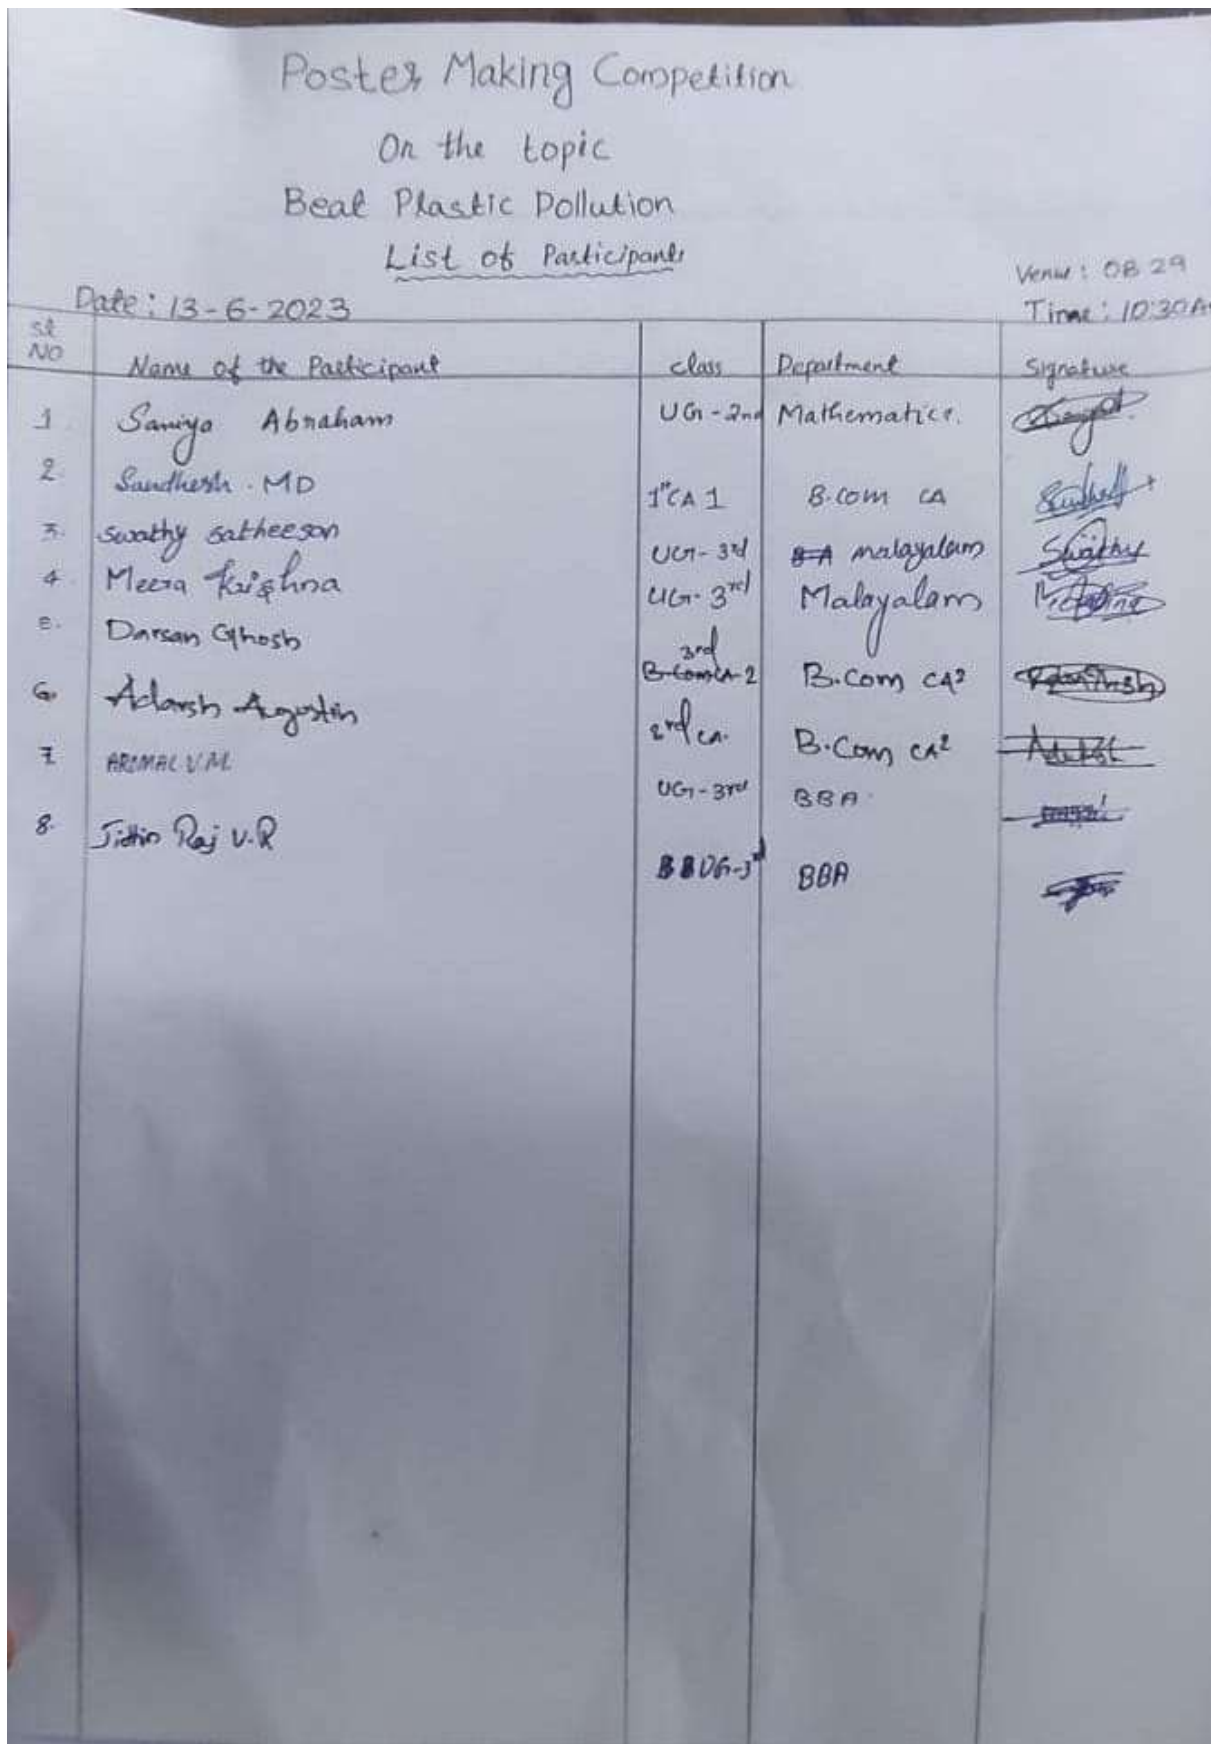 Poster Making Competition
On the topic
Beat Plastic Pollution
List of Participants
Venue : OB 29
Date : 13-6-2023
Time : 10:30 A
Sl NO Name of the Participant class Department Signature
1. Saniya Abraham UG-2nd Mathematics.
2. Sandhesh . MD 1st CA 1 B.com CA
3. swathy satheesan UG-3rd BA malayalam Swathy
4. Meera Krishna UG-3rd Malayalam
5. Darsan Ghosh 3rd B.Com CA-2 B.Com CA2
6. Adarsh Augustin 2nd CA. B.Com CA2
7. AROMAL V.M UG-3rd BBA
8. Jithin Raj V.R UG-3rd BBA